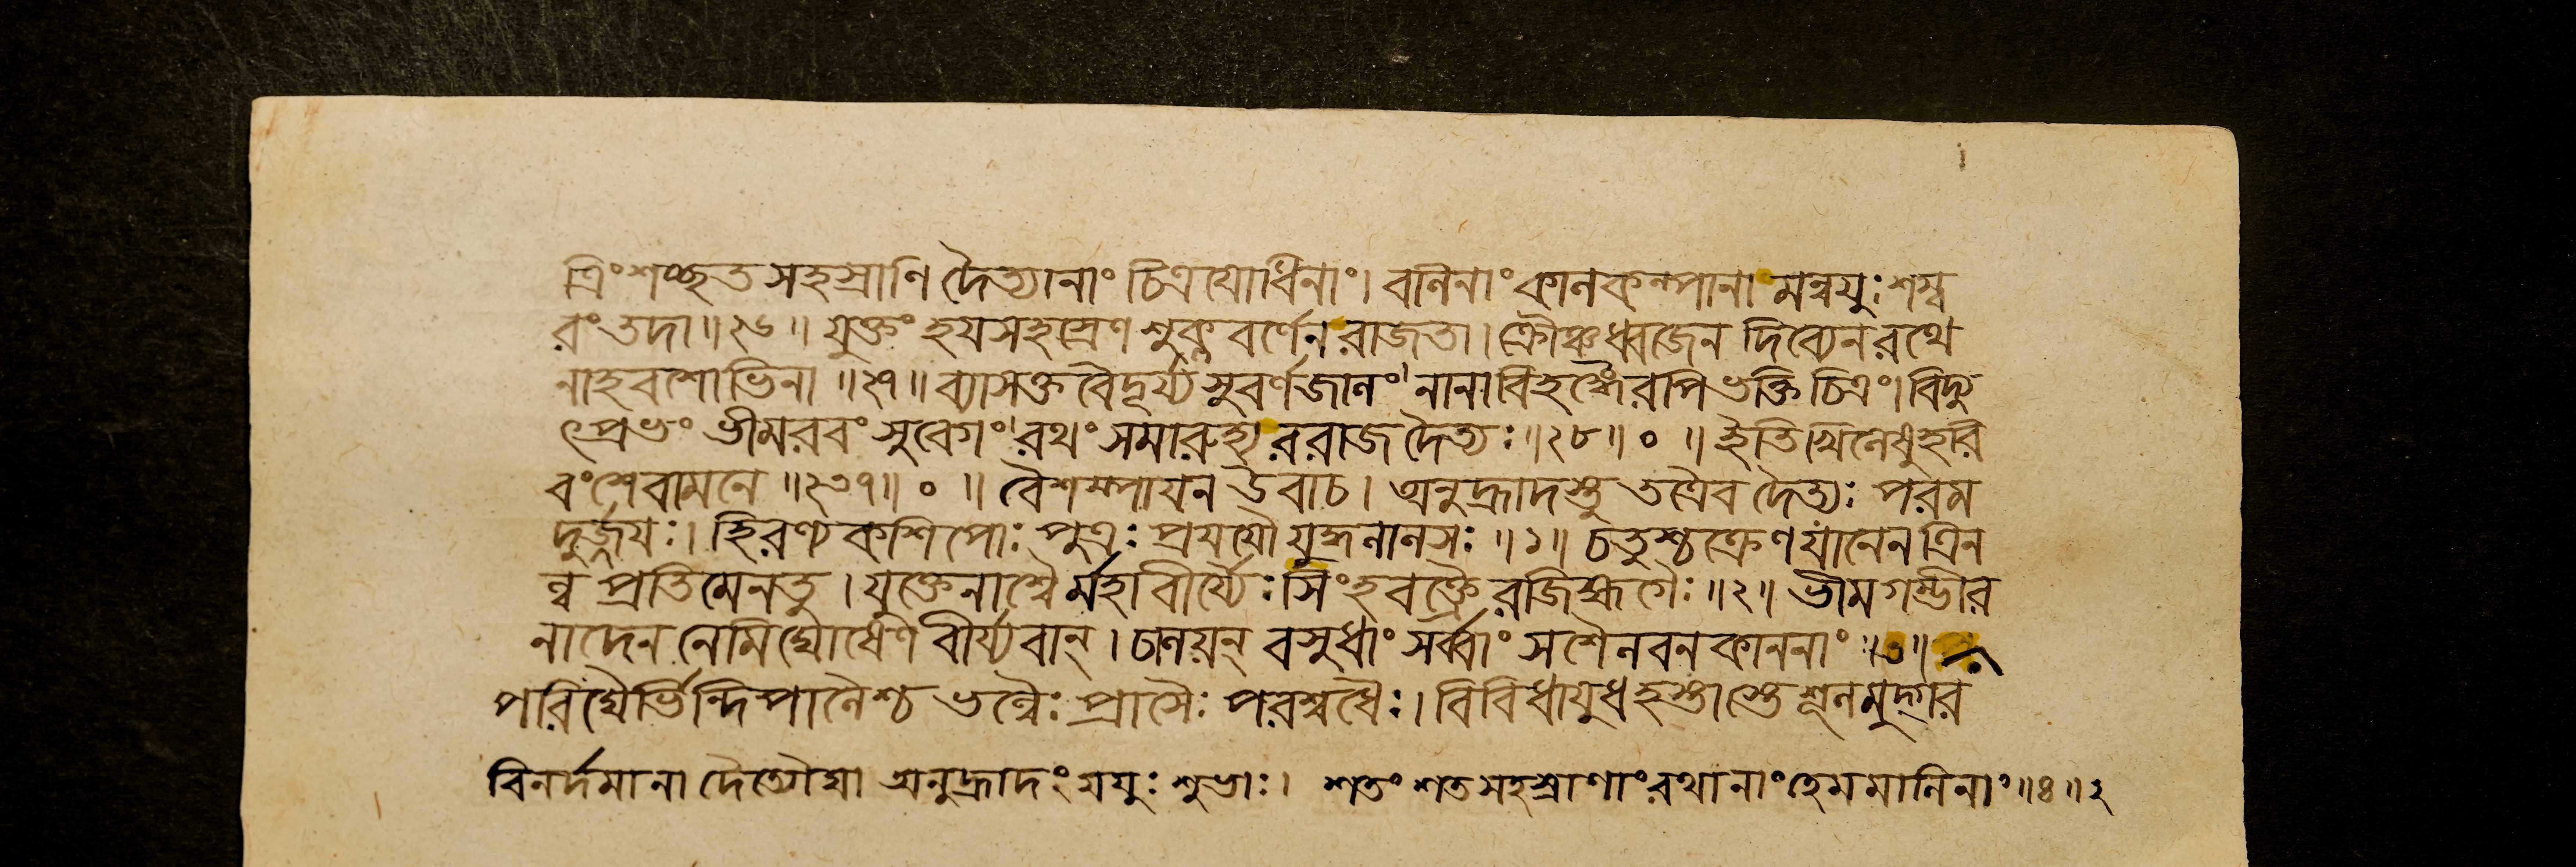 ত্রিংশচ্ছতসহস্রাণি দৈত্যানাং চিত্রযোধিনাং। বলিনাং কালকল্পানা মন্বযুঃ শম্ব
রং তদা॥২৬॥ যুক্তং হয়সহস্রেণ শুক্লবর্ণেন রাজতা। ক্রৌঞ্চধ্বজেন দিব্যেন রথে
নাহবশোভিনা॥২৭॥ ব্যাসক্তবৈদূর্য্যসুবর্ণজালং নানাবিহঙ্গৈরপি ভক্তিচিত্রং। বিদ্যু
ৎপ্রভং ভীমরবং সুবেগং রথং সমারুহ্য ররাজ দৈত্যঃ॥২৮॥ ০ ॥ ইতি খিলেষু হরি
বংশে বামনে॥২৩৭॥ ০ ॥ বৈশম্পায়ন উবাচ। অনুহ্রাদস্তু তত্রৈব দৈত্যঃ পরম
দুর্জ্জয়ঃ। হিরণ্যকশিপোঃ পুত্রঃ প্রযযৌ যুদ্ধলালসঃ॥১॥ চতুশ্চক্রেণ যানেন ত্রিন
ল্ব প্রতিমেন তু। যুক্তেনাশ্বৈর্মহাবীর্য্যৈঃ সিংহবক্ত্রৈরজিহ্মগৈঃ॥২॥ ভীমগম্ভীর
নাদেন নেমিঘোষেণ বীর্য্যবান্। চালয়ন্ বসুধাং সর্ব্বাং সশৈলবনকাননাং॥৩॥
পরিঘৈর্ভিন্দিপালৈশ্চ ভল্লৈঃ প্রাসৈঃ পরশ্বধৈঃ। বিবিধায়ুধহস্তাস্তে শূলমুদ্গর
বিনর্দমানা দৈত্যৌঘা অনুহ্রাদং যযুঃ শুভাঃ। শতং শতসহস্রাণাং রথানাং হেমমালিনাং॥৪॥২